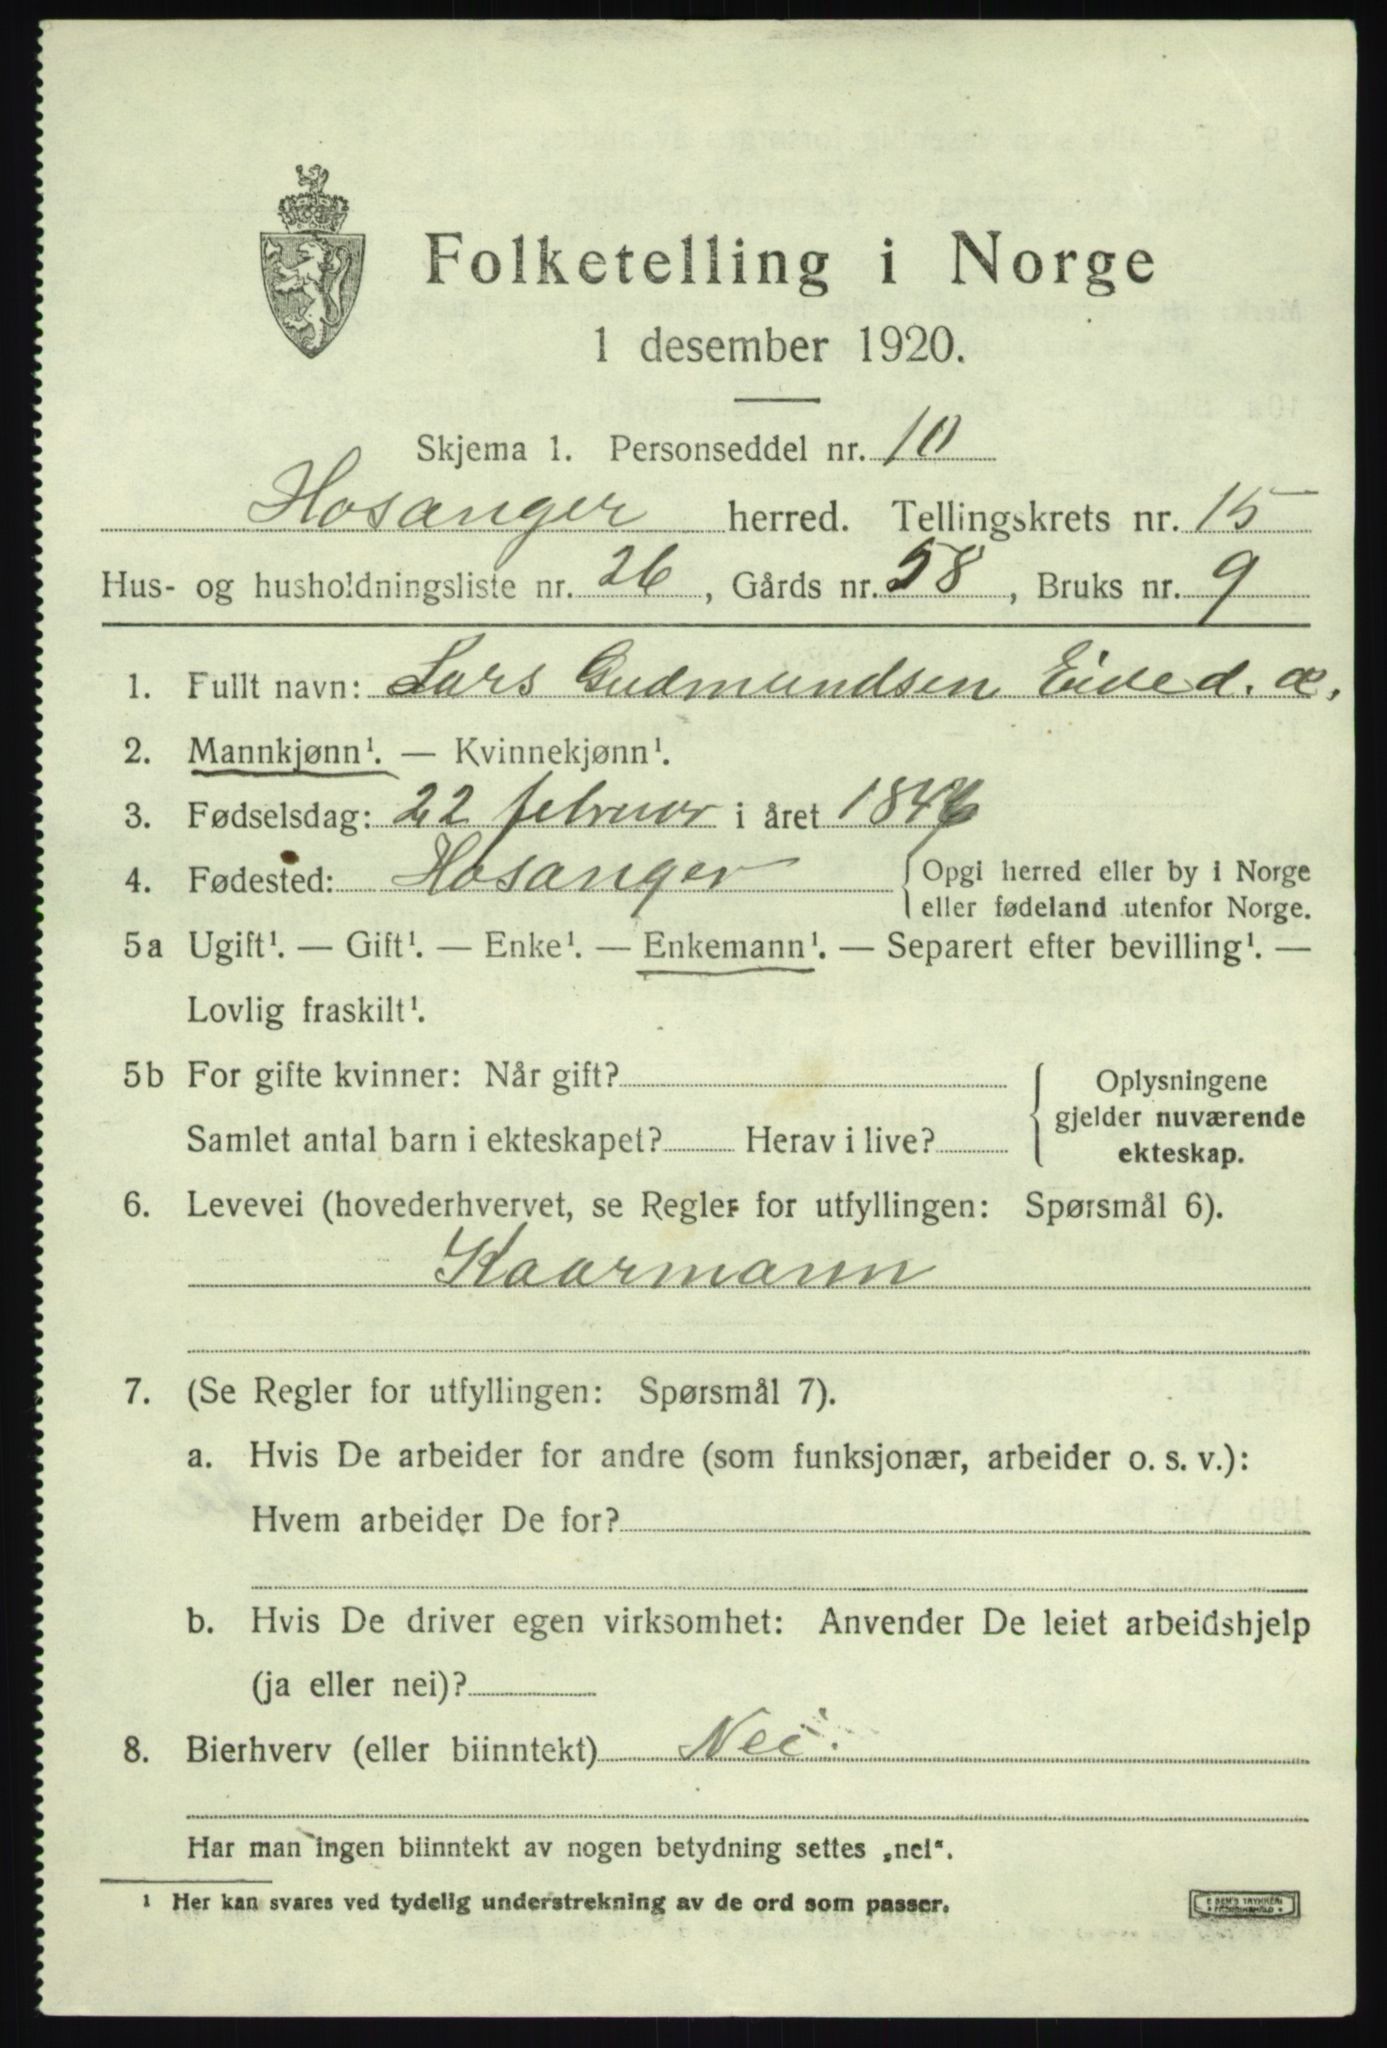 Folketelling i Norge
1 desember 1920.
Skjema 1. Personseddel nr. 10
Hosanger herred. Tellingskrets nr. 15
Hus- og husholdningsliste nr. 26, Gårds nr. 58, Bruks nr. 9
1. Fullt navn: Lars Gudmundsen Eide d. æ.
2. Mannkjønn¹. — Kvinnekjønn¹.
3. Fødselsdag: 22 februar i året
4. Fødested: Hosanger { Opgi herred eller by i Norge
eller fødeland utenfor Norge.
5a Ugift¹. — Gift¹. — Enke¹. — Enkemann¹. — Separert efter bevilling¹. —
Lovlig fraskilt¹.
5b For gifte kvinner: Når gift?
Samlet antal barn i ekteskapet? Herav i live?
{ Oplysningene
gjelder nuværende
ekteskap.
6. Levevei (hovederhvervet, se Regler for utfyllingen: Spørsmål 6).
Kaarmann
7. (Se Regler for utfyllingen: Spørsmål 7).
a. Hvis De arbeider for andre (som funksjonær, arbeider o. s. v.):
Hvem arbeider De for?
b. Hvis De driver egen virksomhet: Anvender De leiet arbeidshjelp
(ja eller nei)?
8. Bierhverv (eller biinntekt) Nei.
Har man ingen biinntekt av nogen betydning settes „nei“.
¹ Her kan svares ved tydelig understrekning av de ord som passer.